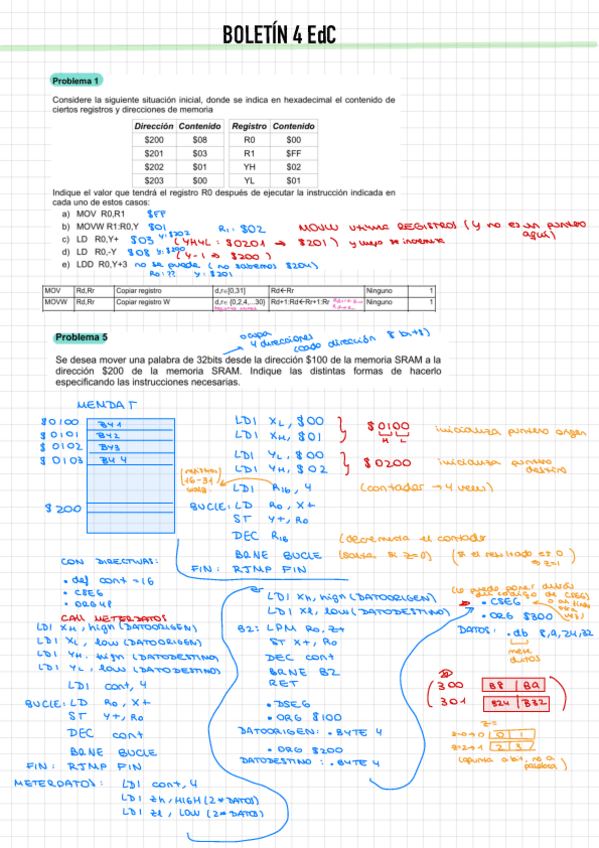 BOLETÍN 4 EdC
Problema 1
Considere la siguiente situación inicial, donde se indica en hexadecimal el contenido de
ciertos registros y direcciones de memoria
Dirección Contenido Registro Contenido
$200 $08 R0 $00
$201 $03 R1 $FF
$202 $01 YH $02
$203 $00 YL $01
Indique el valor que tendrá el registro R0 después de ejecutar la instrucción indicada en
cada uno de estos casos:
a) MOV R0,R1 $FF
b) MOVW R1:R0,Y $01 R1: $02 MOVW utiliza REGISTROS (y no es un puntero aquí)
c) LD R0,Y+ $03 Y: $202 (YHYL: $0201 → $201) y luego se incrementa
d) LD R0,-Y $08 Y: $200 (Y-1 → $200)
e) LDD R0,Y+3 no se puede (no sabemos $204)
R0: ?? Y: $201
MOV Rd,Rr Copiar registro d,r∈[0,31] Rd←Rr Ninguno 1
MOVW Rd,Rr Copiar registro W d,r∈{0,2,4,...30} Rd+1:Rd←Rr+1:Rr Ninguno 1
Problema 5
ocupa
4 direcciones (cada dirección 8 bits)
Se desea mover una palabra de 32bits desde la dirección $100 de la memoria SRAM a la
dirección $200 de la memoria SRAM. Indique las distintas formas de hacerlo
especificando las instrucciones necesarias.
MEMDAT
$0100 BY1
$0101 BY2
$0102 BY3
$0103 BY4
$200
LDI XL, $00
LDI XH, $01
$0100
H L
inicializa puntero origen
LDI YL, $00
LDI YH, $02
$0200
inicializa puntero
destino
16-31
LDI R16, 4 (contador → 4 veces)
BUCLE: LD R0, X+
ST Y+, R0
DEC R16 (decrementa el contador
BRNE BUCLE (salta si Z=0) (si el resultado es 0
→ Z=1
FIN: RJMP FIN
CON DIRECTIVAS:
• def cont = 16
• CSEG
• ORG
CALL METERDATOS
LDI XH, high (DATOORIGEN)
LDI XL, low (DATOORIGEN)
LDI YH, high (DATODESTINO)
LDI YL, low (DATODESTINO)
LDI cont, 4
BUCLE: LD R0, X+
ST Y+, R0
DEC cont
BRNE BUCLE
FIN: RJMP FIN
METERDATOS: LDI cont, 4
LDI zh, HIGH (2*DATOS)
LDI zl, LOW (2*DATOS)
LDI XH, high (DATOORIGEN)
LDI XL, low (DATODESTINO)
B2: LPM R0, Z+
ST X+, R0
DEC cont
BRNE B2
RET
• DSEG
• ORG $100
DATOORIGEN: • BYTE 4
• ORG $200
DATODESTINO: • BYTE 4
(lo puedo poner
del código de CSEG)
• CSEG
• ORG $300
DATOS: • db 8,9,24,32
mete
datos
300 B8 B9
301 B24 B32
Z=
Z=0→0 0 1
Z=2→1 2 3
(apunta a bit, no a
palabra)